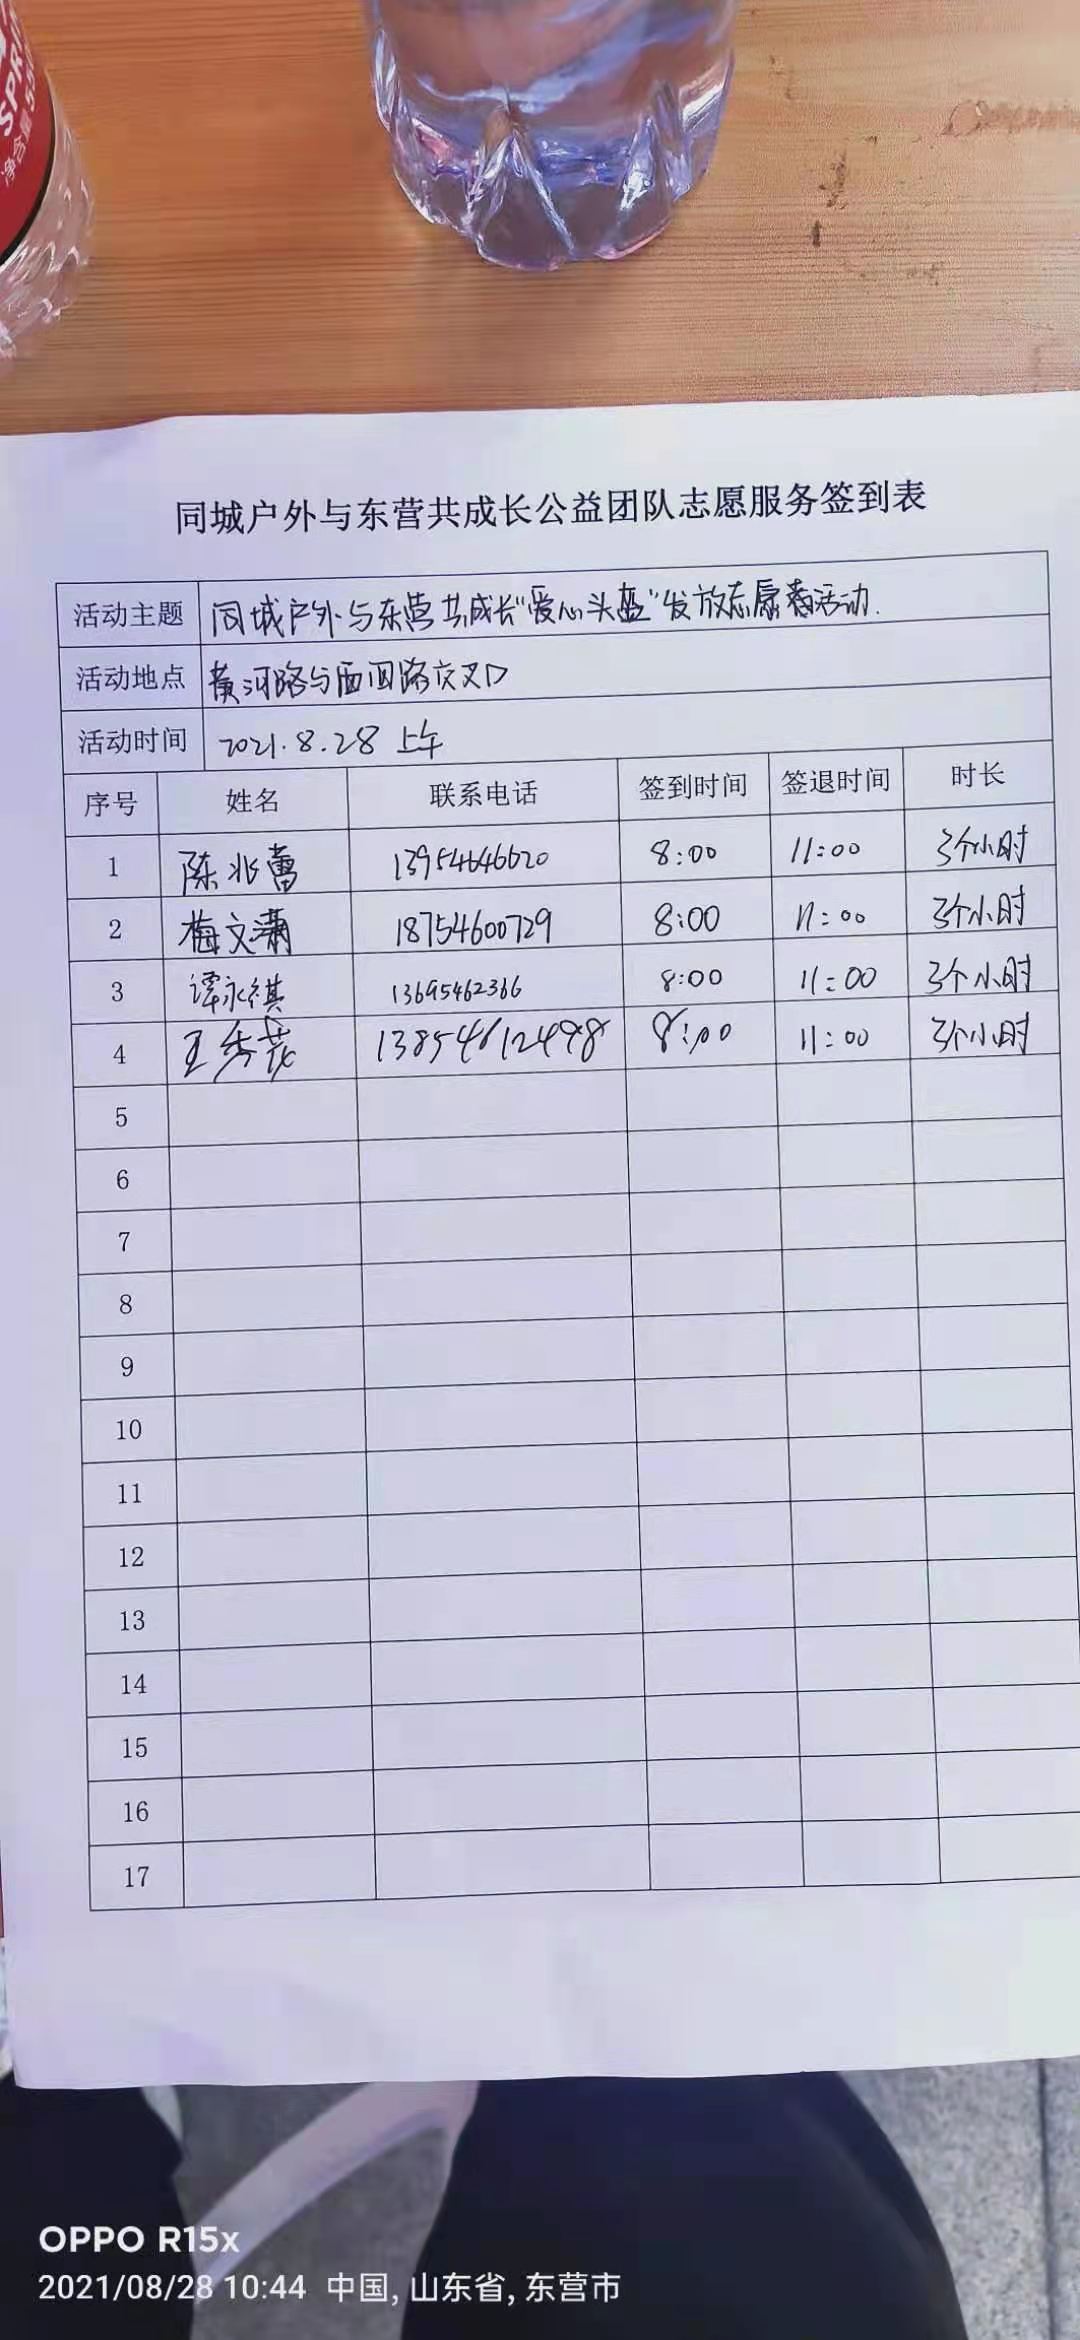 SPR
净含量 5
同城户外与东营共成长公益团队志愿服务签到表
活动主题 同城户外与东营共成长“爱心头盔”发放志愿者活动.
活动地点 黄河路与西四路交叉口
活动时间 2021.8.28 上午
序号 姓名 联系电话 签到时间 签退时间 时长
1 陈兆蕾 13954646620 8:00 11:00 3个小时
2 梅文潇 18754600729 8:00 11:00 3个小时
3 谭永祺 13695462366 8:00 11:00 3个小时
4 王秀花 13854612498 8:00 11:00 3个小时
5
6
7
8
9
10
11
12
13
14
15
16
17
OPPO R15x
2021/08/28 10:44 中国, 山东省, 东营市